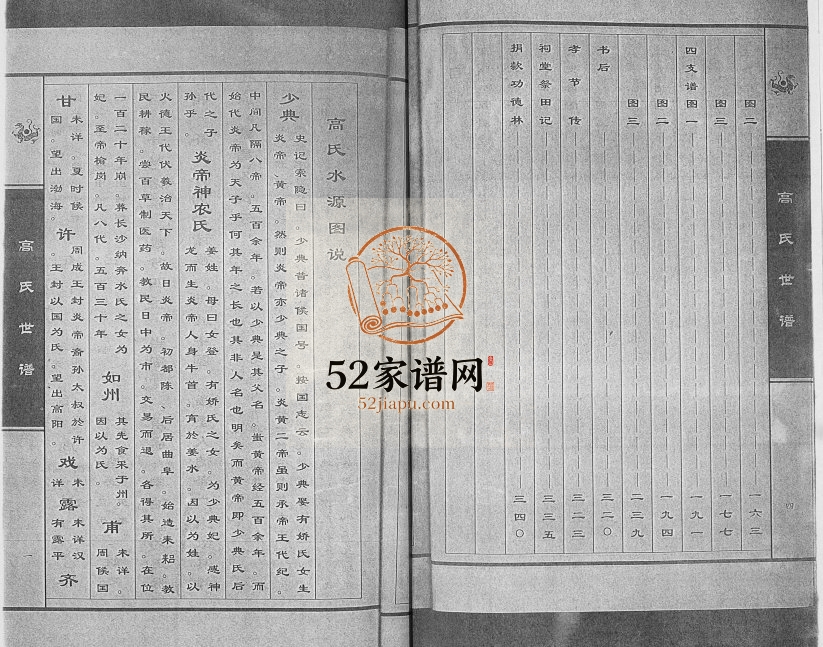 图二 一六三
图三 一七七
四支谱图一 一九一
图二 一九四
图三 二三九
书后 三二〇
孝节传 三二三
祠堂祭田记 三三五
捐款功德林 三四〇
高氏世谱
四
高氏水源图说
少典 史记索隐曰。少典昔诸候国号。按国志云。少典娶有娇氏女生
炎帝、黄帝。然则炎帝亦少典之子。炎黄二帝虽则承帝王代纪。
中间凡隔八帝。五百余年。若以少典是其父名。岂黄帝经五百余年。而
始代炎帝为天子乎何其年之长也其非人名也明矣而黄帝即少典氏后
代之子孙乎。
炎帝神农氏 姜姓。母曰女登。有娇氏之女。为少典妃。感神
龙而生炎帝人身牛首。育於姜水。因以为姓。以
火德王代伏羲治天下。故曰炎帝。初都陈、后居曲阜。始造耒耜。教
民耕稼。尝百草制医药。教民日中为市。交易而退。各得其所。在位
一百二十年崩。葬长沙纳奔水氏之女为
妃。至帝榆岗。凡八代。五百三十年。
如州 其先食采于州。
因以为氏。
甫 未详。
周候国
甘 未详。夏时候
国。望出渤海。
许 周成王封炎帝裔孙太叔於许。
王封以国为氏。望出高阳。
戏 未
详
露 未详汉
有露平
齐
高氏世谱
一
52家谱网
52jiapu.com